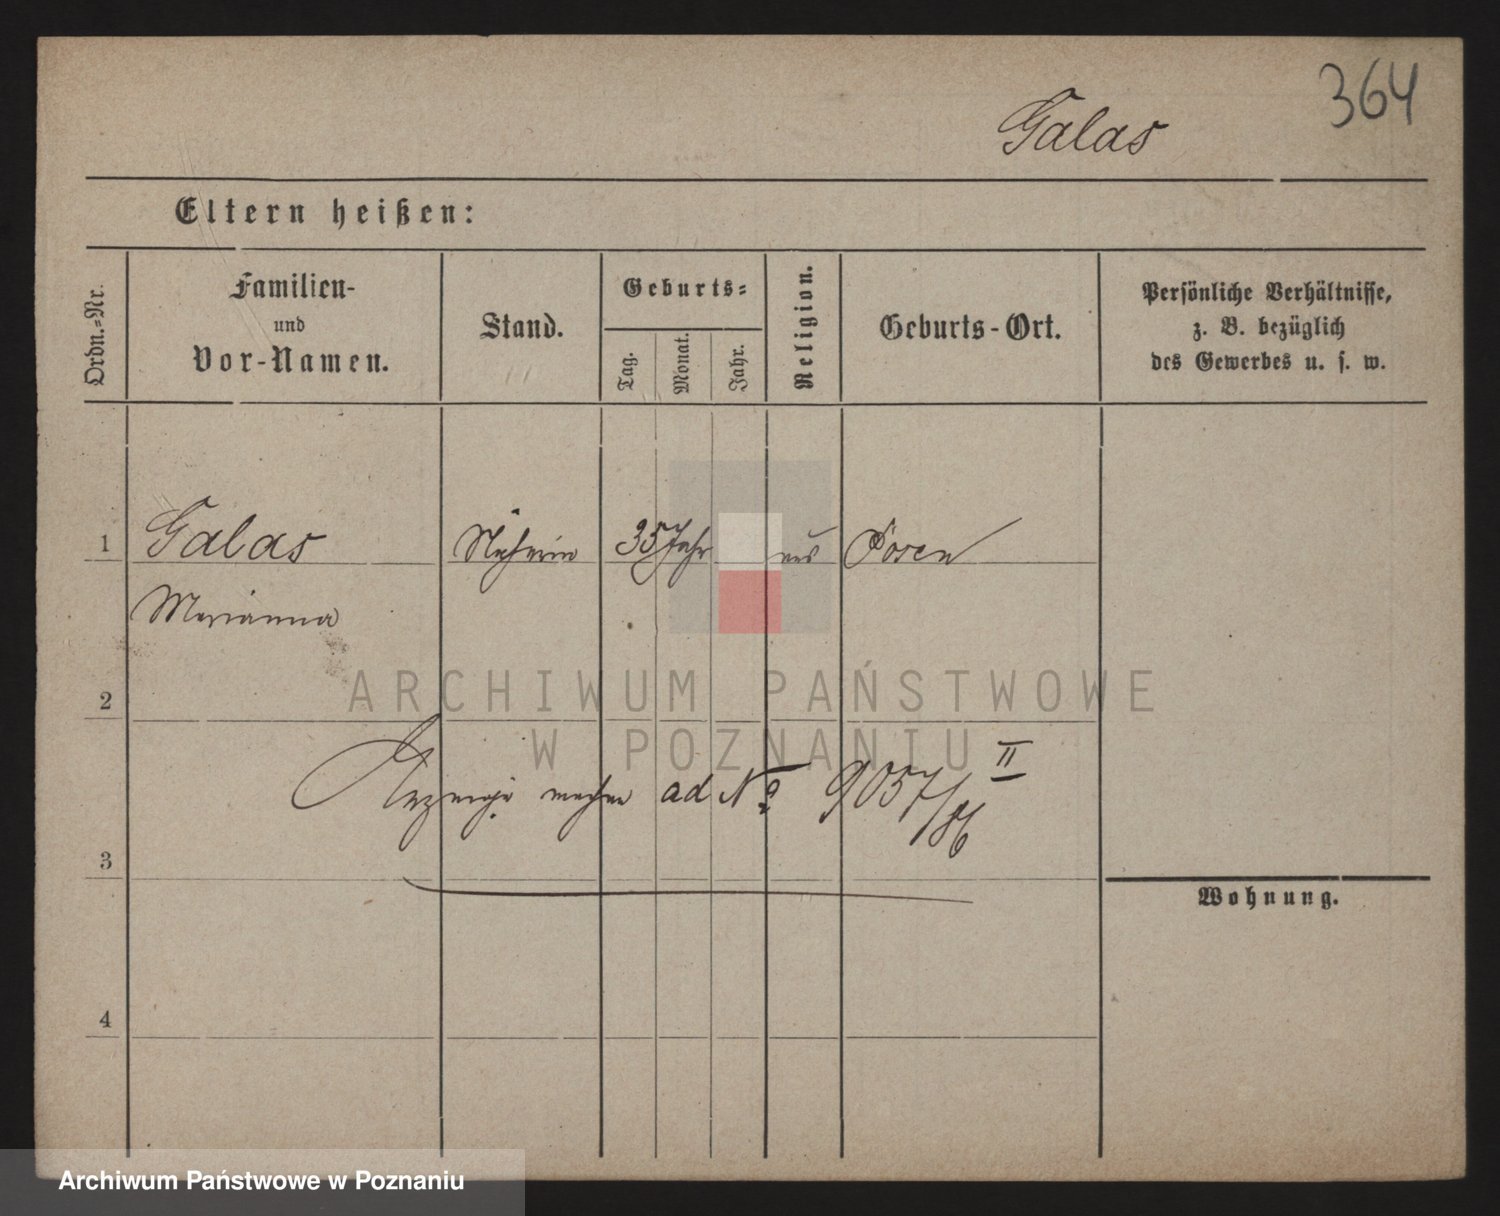 364
Galas
Eltern heißen:
Ordn.-Nr.
Familien-
und
Vor-Namen.
Stand.
Geburts-
Tag.
Monat.
Jahr.
Religion.
Geburts-Ort.
Persönliche Verhältnisse,
z. B. bezüglich
des Gewerbes u. s. w.
1 Galas Näherin 35 Jahr aus Posen
Marianna
2
ARCHIWUM PAŃSTWOWE
W POZNANIU
ad No 9057/86 II
3
Wohnung.
4
Archiwum Państwowe w Poznaniu